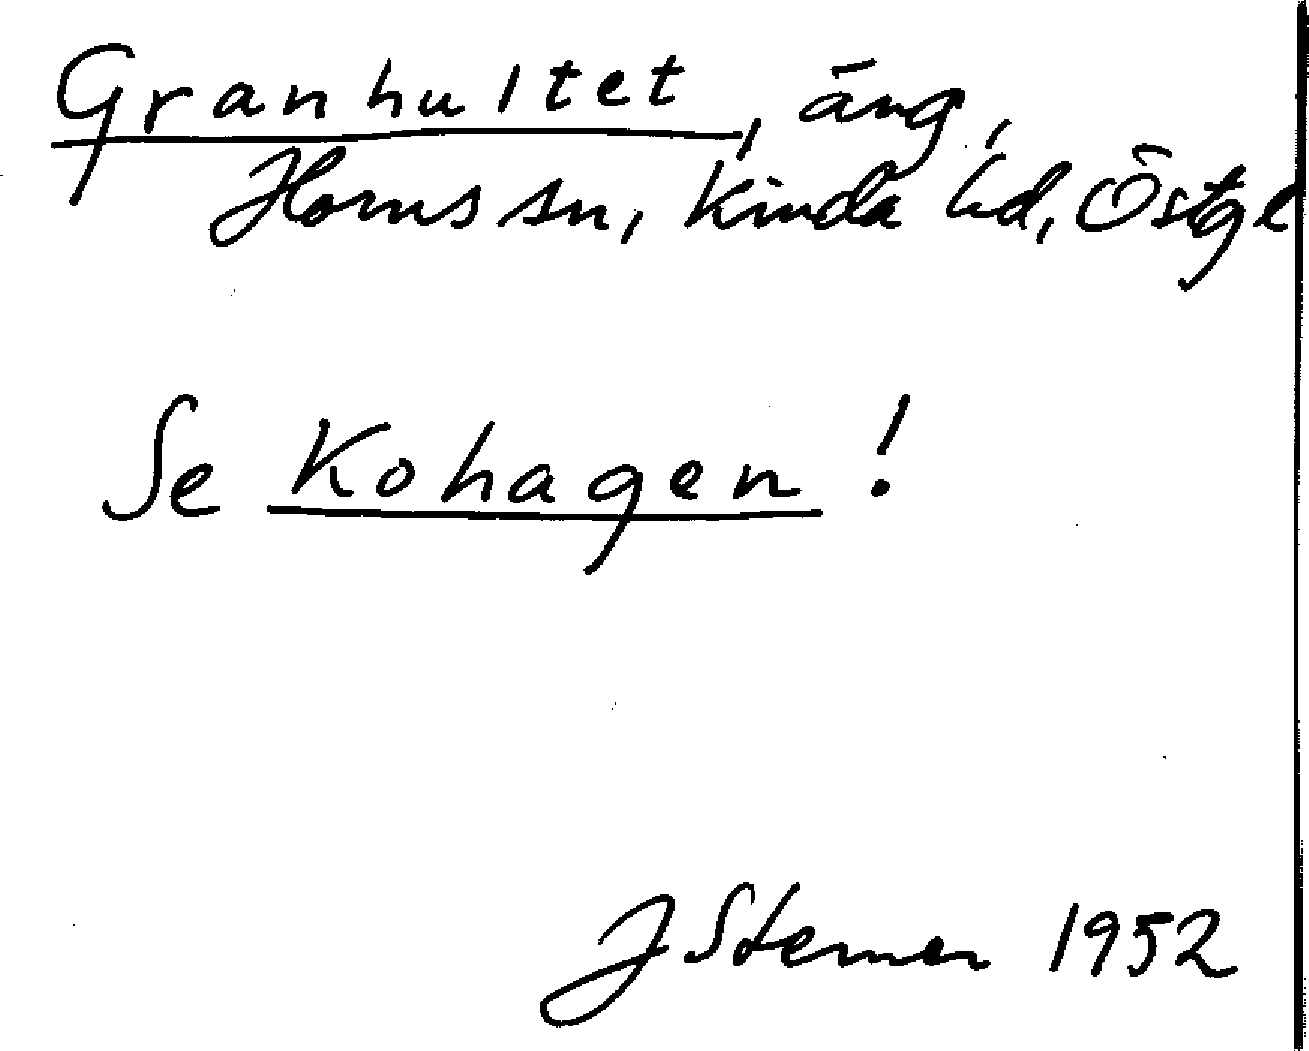 Granhultet, äng,
Horns sn, Kinda hd, Östgl
Se Kohagen!
J Sterner 1952